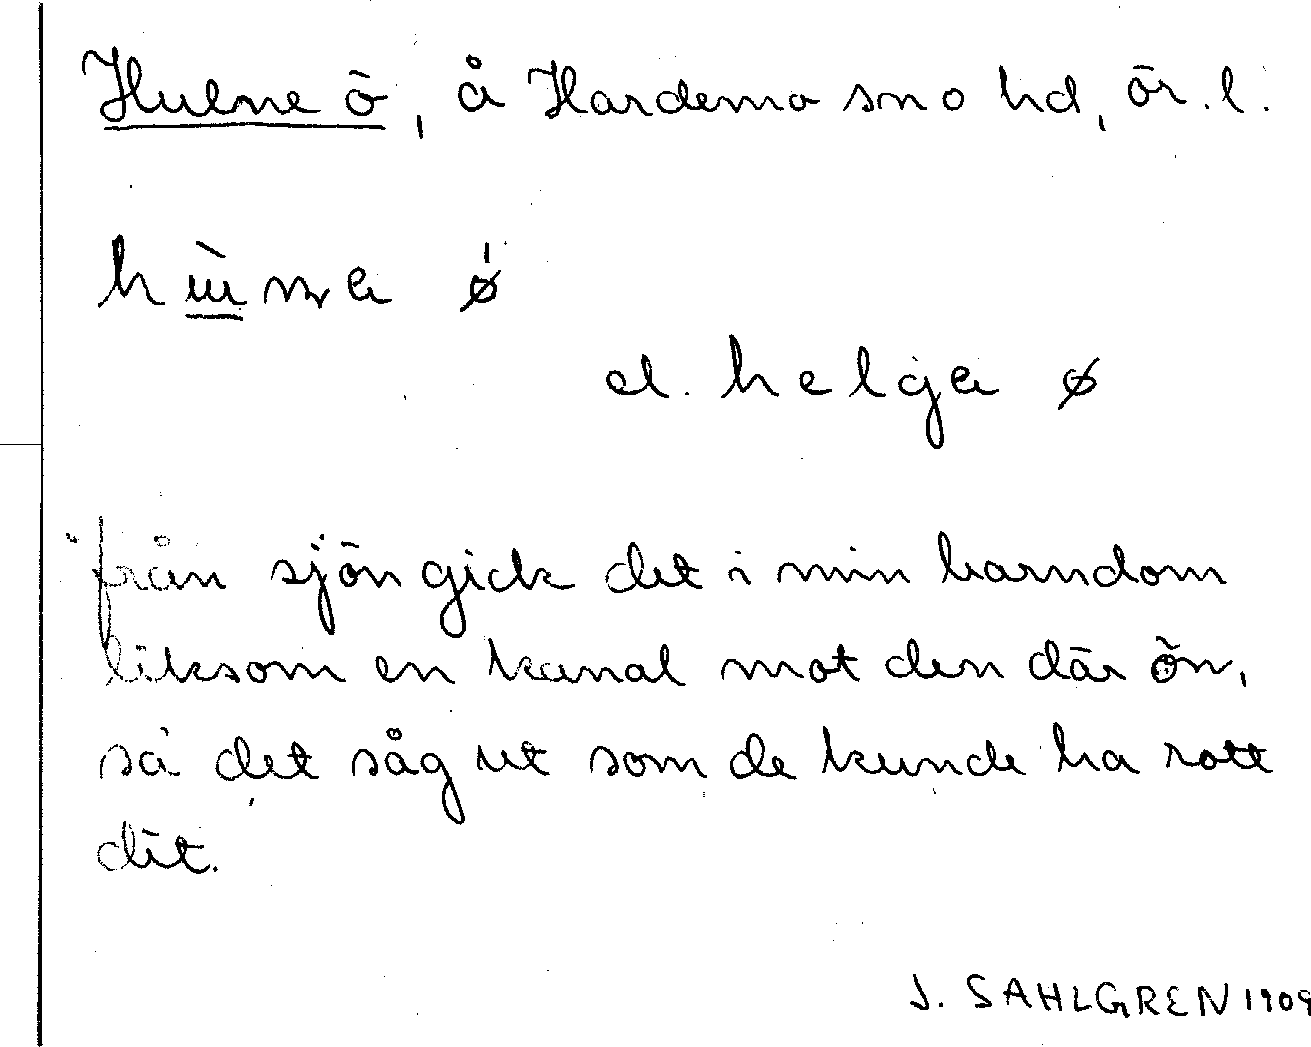 Hulne ö, å Hardemo sn o hd, ör. l.
el. helga ø
från sjön gick det i min barndom
liksom en kanal mot den där ön,
så det såg ut som de kunde ha rott
dit.
J. SAHLGREN 1909